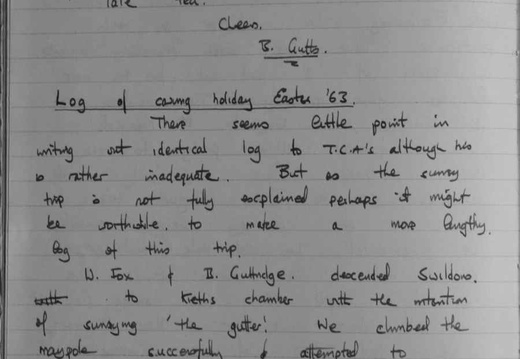 late tea.
Cheers.
B. Gutts.
Log of caving holiday Easter '63.
There seems little point in
writing out identical log to T.C.A's although his
is rather inadequate. But as the survey
trip is not fully explained perhaps it might
be worthwhile. to make a more lengthy
log of this trip.
W. Fox & B. Guttridge. descended Swildons.
to Keiths chamber with the intention
of surveying 'the gutter'. We climbed the
maypole successfully & attempted to